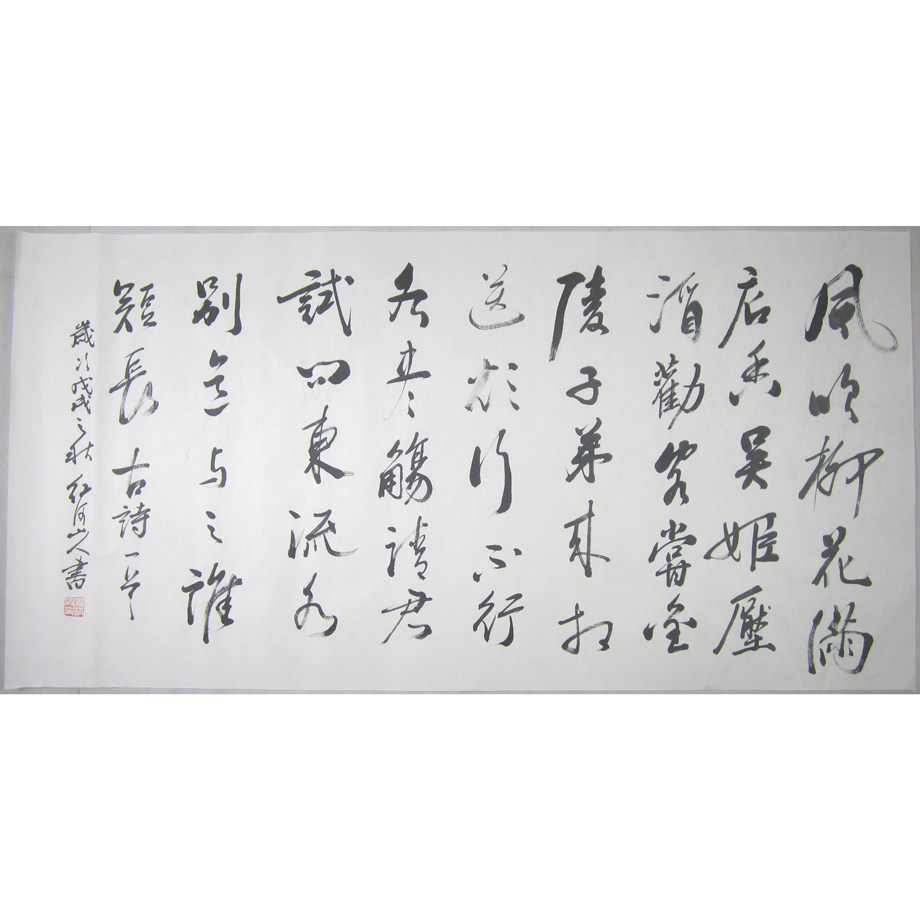 風吹柳花滿
店香吴姬壓
酒勸客嘗金
陵子弟来相
送欲行不行
各尽觴請君
試问東流水
别意与之誰
短長 古詩一首
歲次戊戌之秋 红河山人書